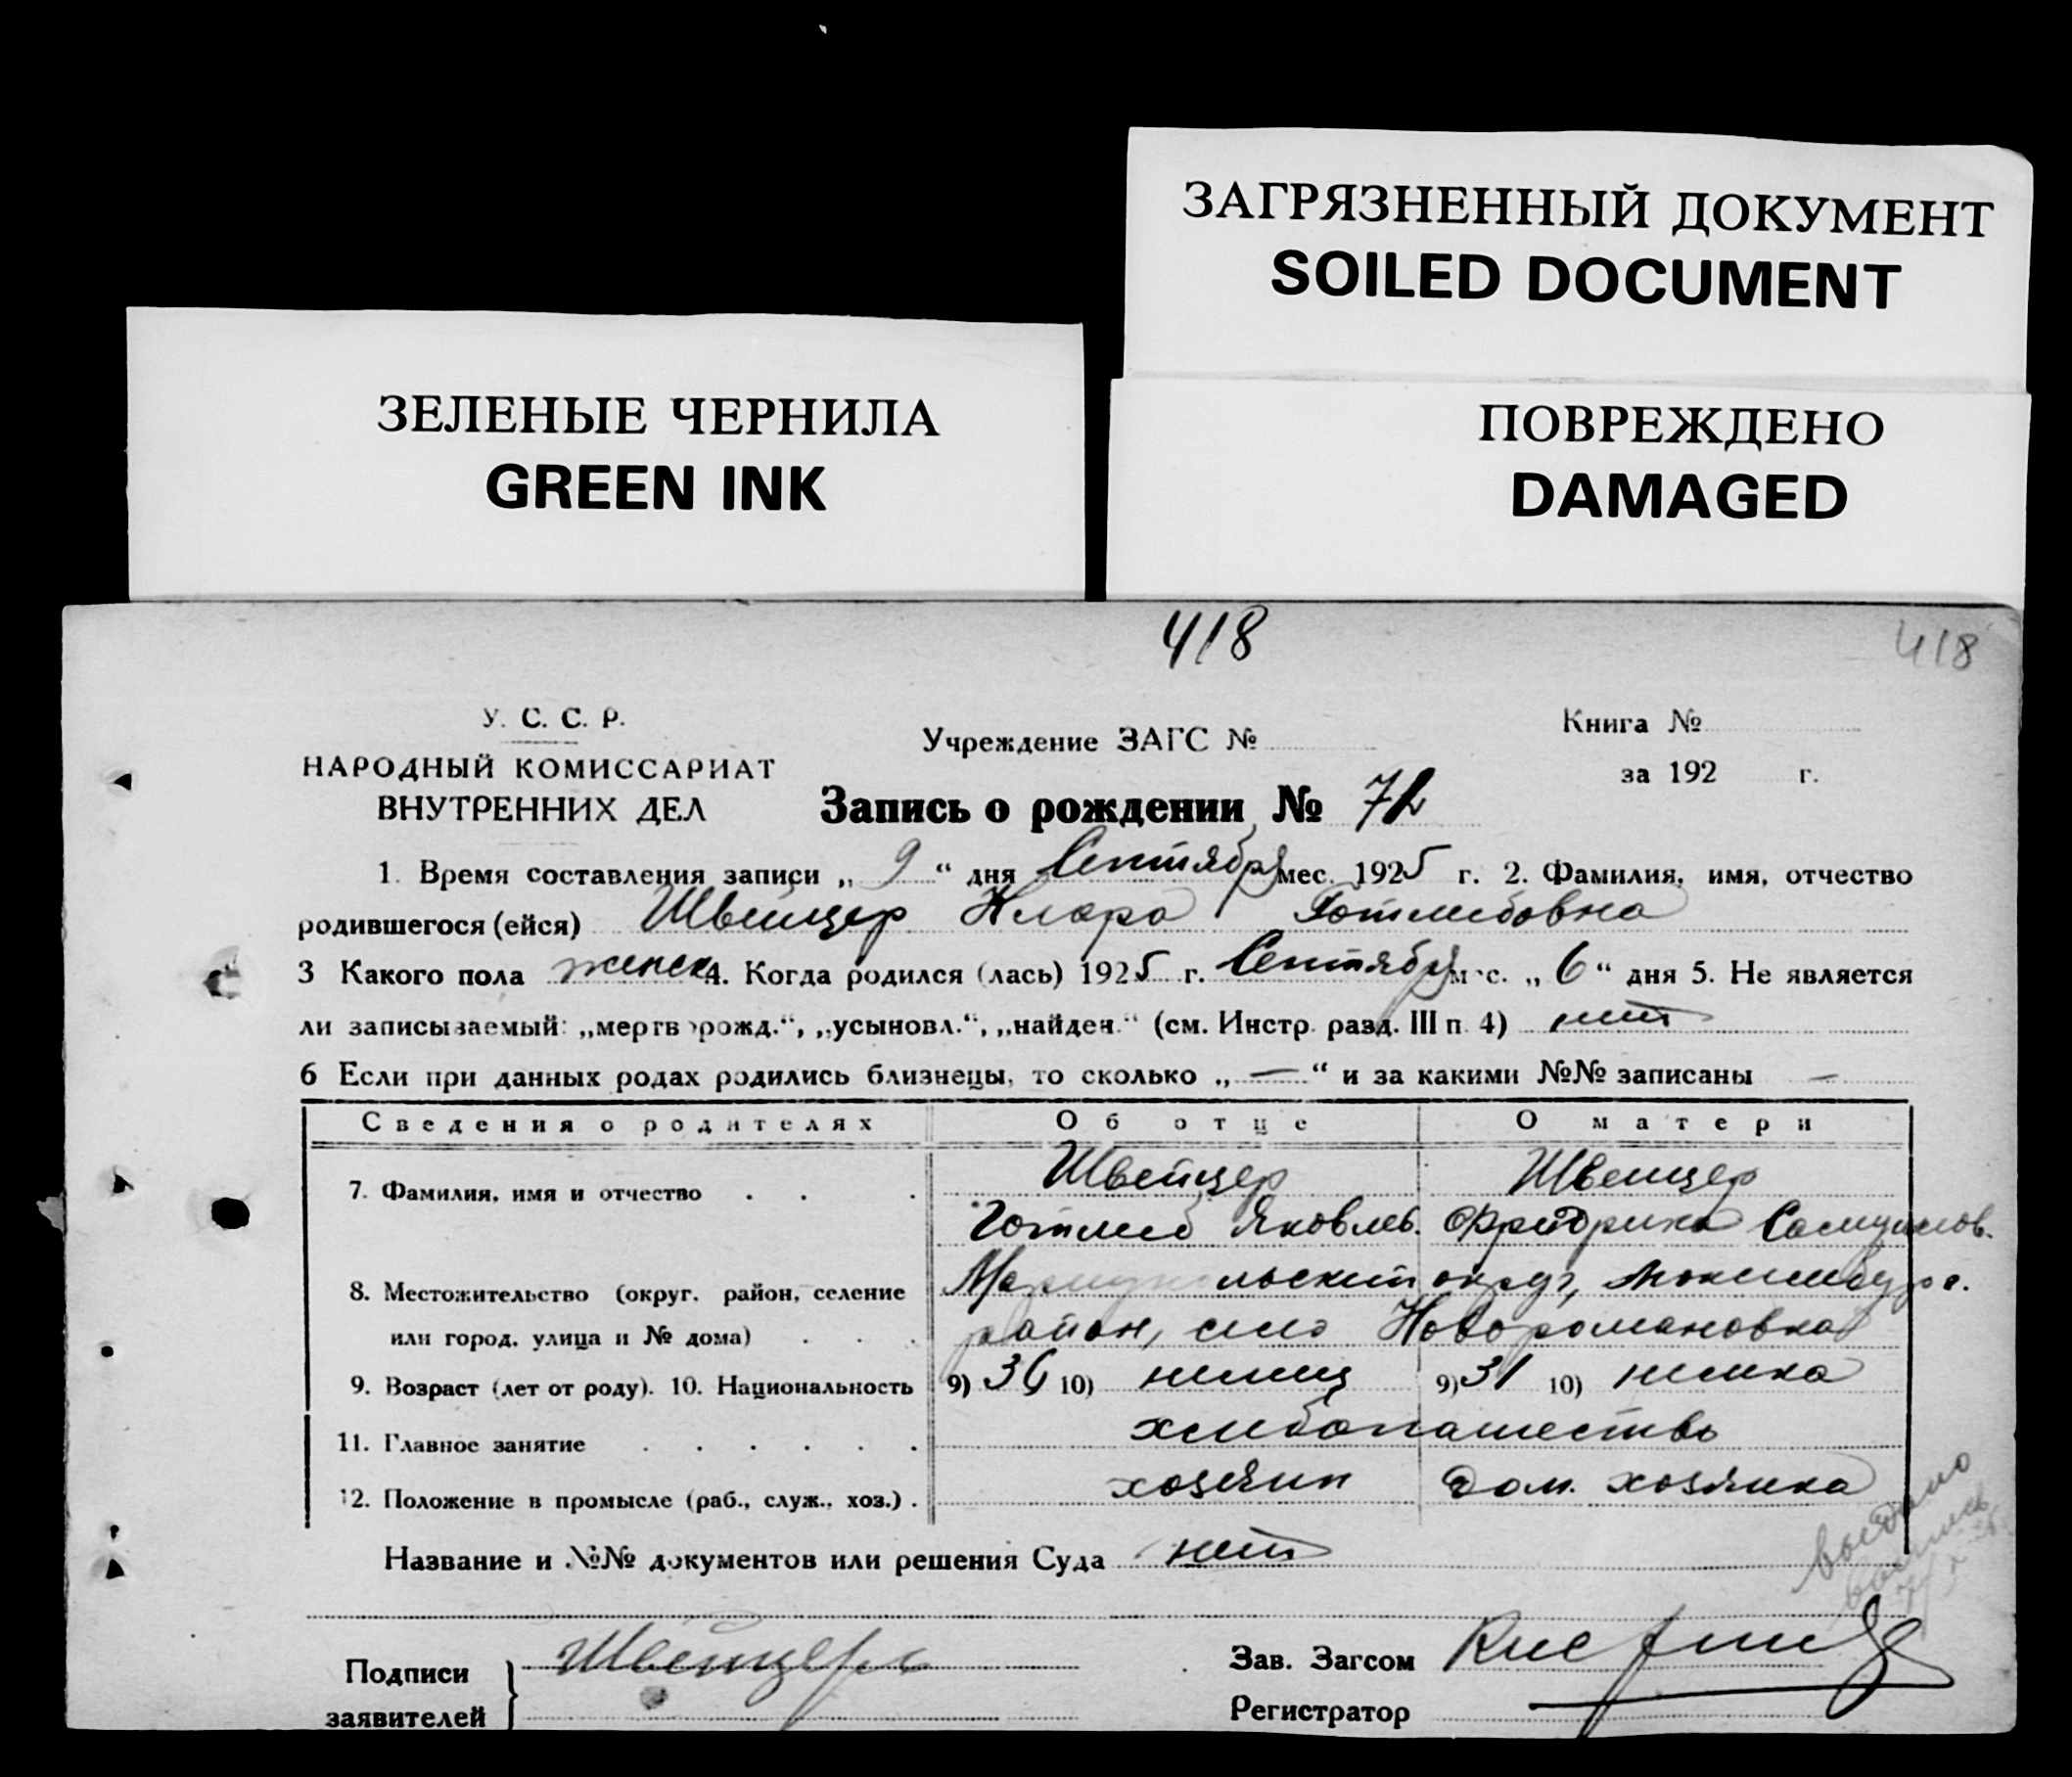 ЗАГРЯЗНЕННЫЙ ДОКУМЕНТ
SOILED DOCUMENT
ЗЕЛЕНЫЕ ЧЕРНИЛА
GREEN INK
ПОВРЕЖДЕНО
DAMAGED
418
418
У. С. С. Р.
НАРОДНЫЙ КОМИССАРИАТ
ВНУТРЕННИХ ДЕЛ
Учреждение ЗАГС №
Книга №
за 192 г.
Запись о рождении № 72
1. Время составления записи „ 9 “ дня Сентября мес. 1925 г. 2. Фамилия, имя, отчество
родившегося (ейся) Швейцер Клара Готлибовна
3 Какого пола женск 4. Когда родился (лась) 1925 г. Сентября мес. „ 6 “ дня 5. Не является
ли записываемый: „мертворожд.“, „усыновл.“, „найден.“ (см. Инстр. разд. III п. 4) нет
6 Если при данных родах родились близнецы, то сколько „ — “ и за какими №№ записаны —
Сведения о родителях Об отце О матери
7. Фамилия, имя и отчество . . . Швейцер Швейцер
Готлиб Яковлев. Фридрика Самуилов.
8. Местожительство (округ, район, селение Мариупольский округ, Люксембург.
или город, улица и № дома) . . . район, село Новоромановка
9. Возраст (лет от роду). 10. Национальность 9) 36 10) немец 9) 31 10) немка
11. Главное занятие . . . . . . хлебопашество
12. Положение в промысле (раб., служ., хоз.) . хозяин дом. хозяйка
Название и №№ документов или решения Суда нет
выдано
Подписи
заявителей
Швейцер
Зав. Загсом
Регистратор